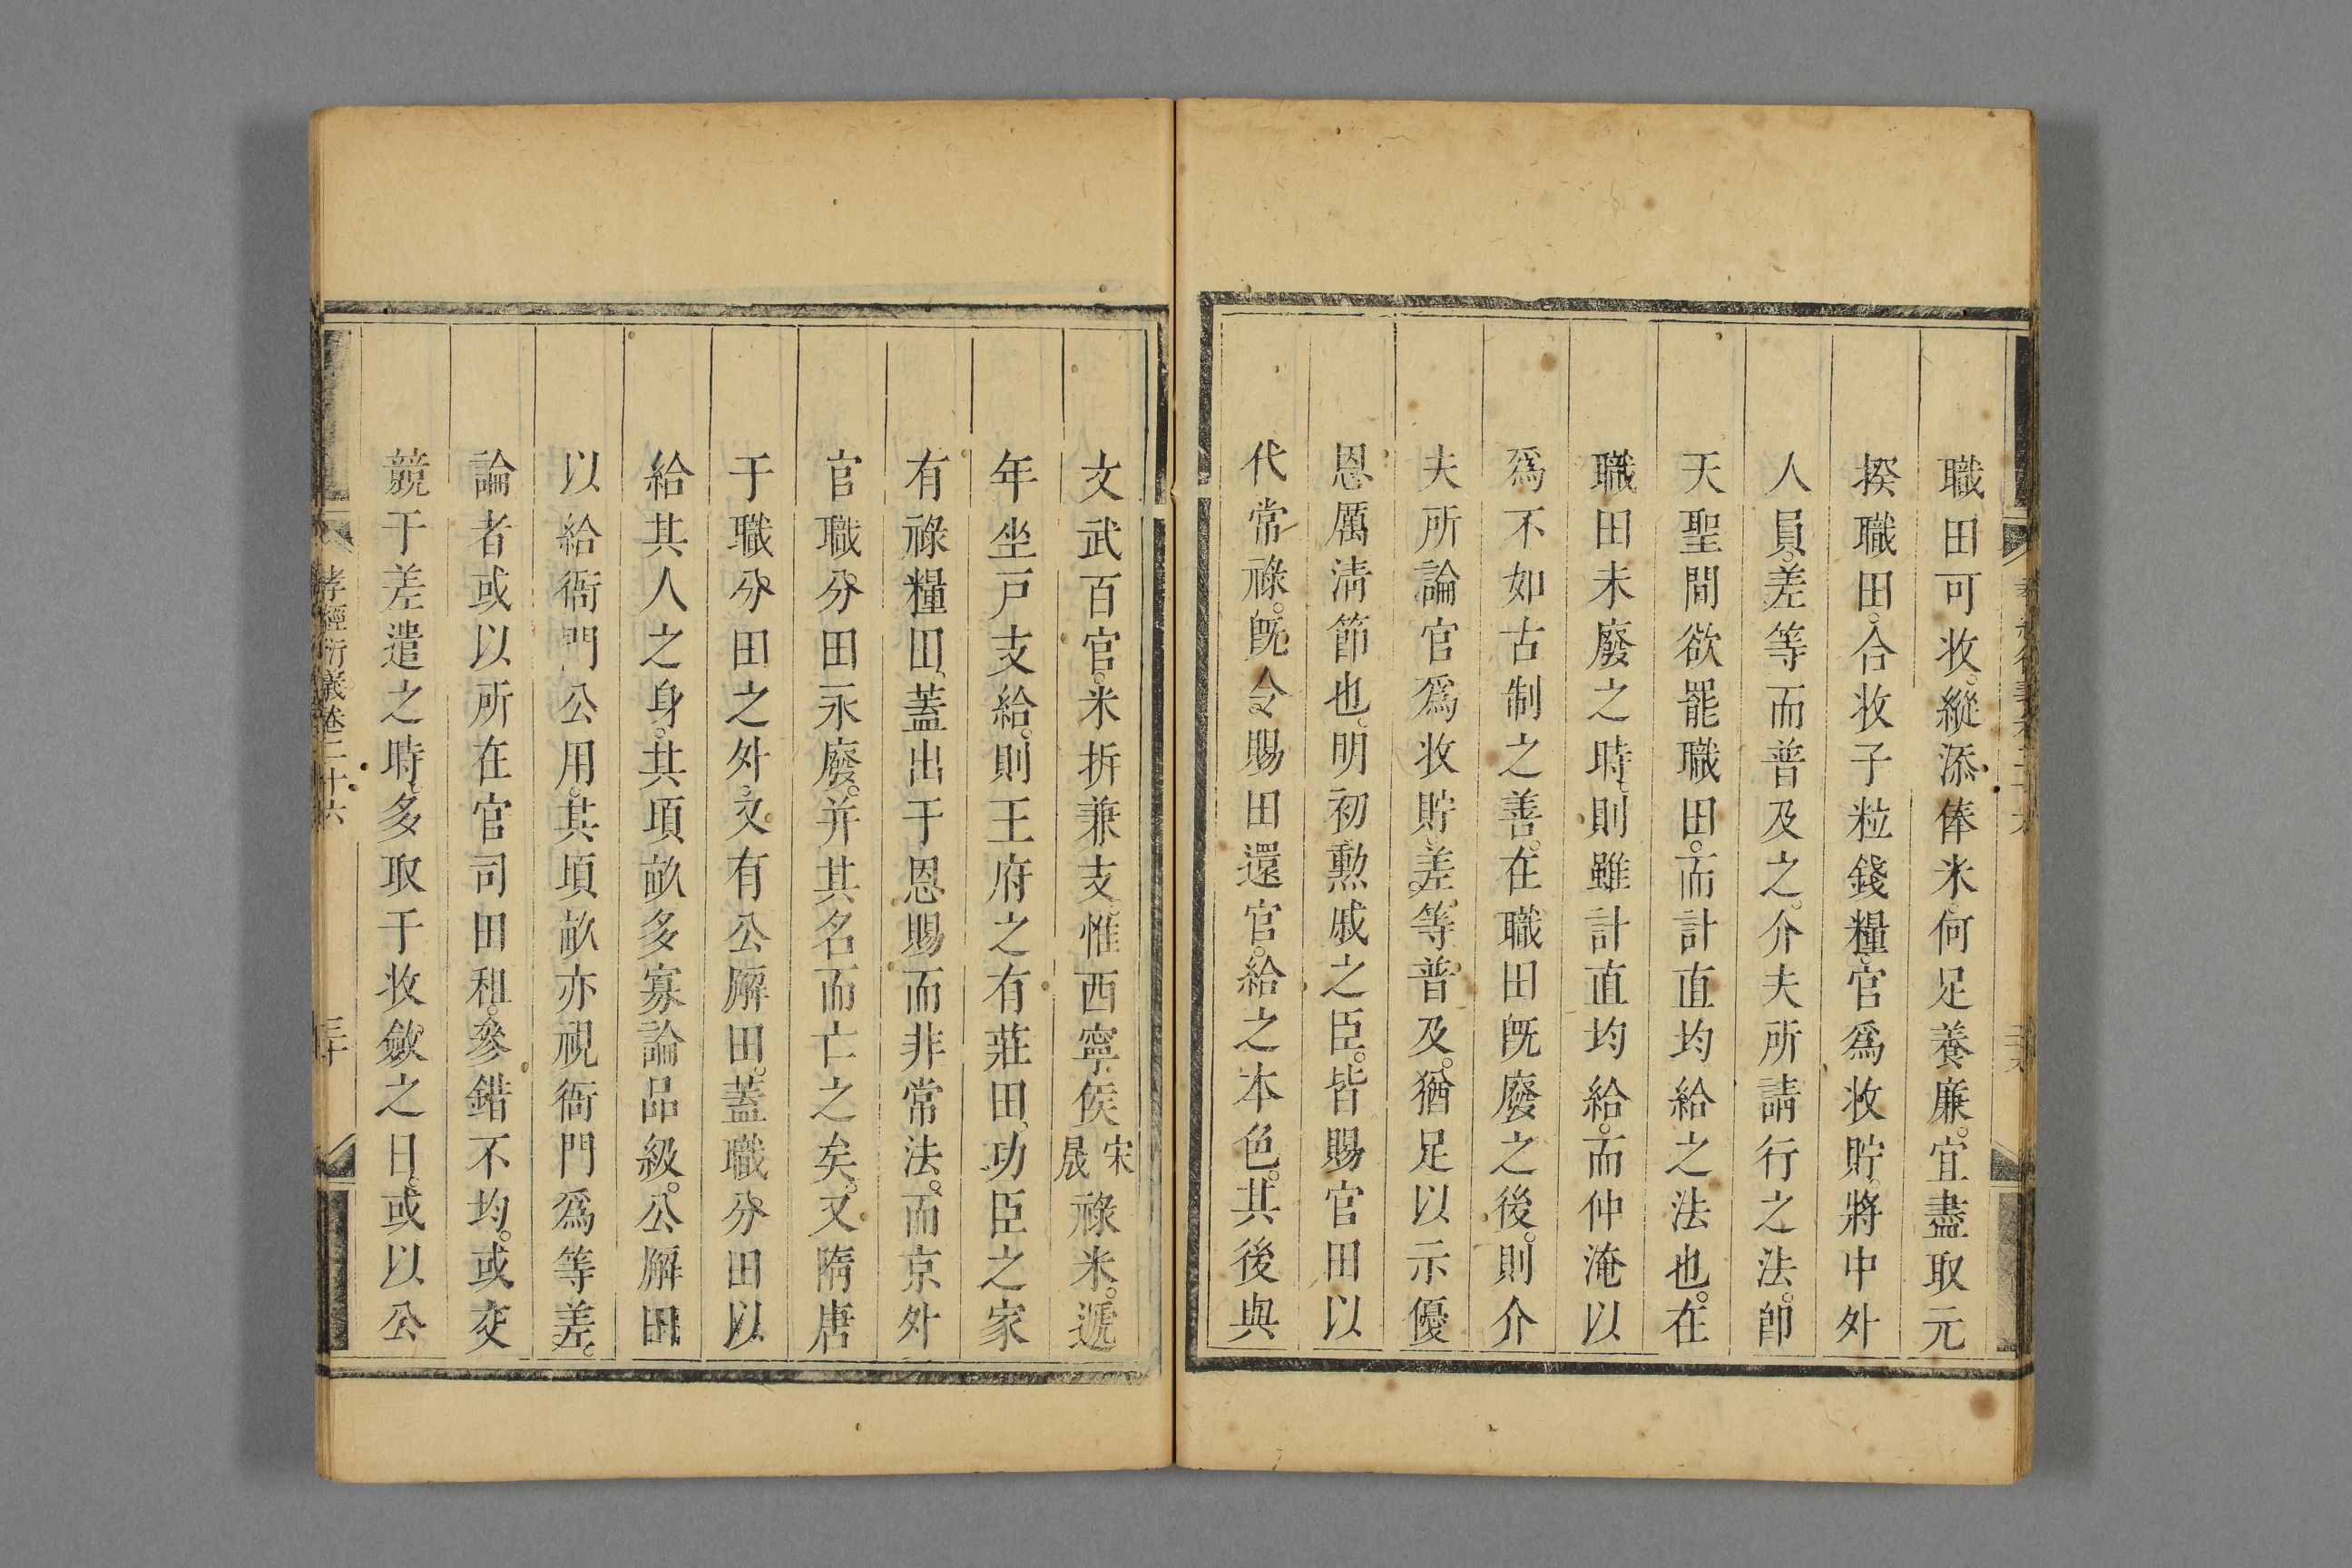 職田可收。縱添俸米。何足養廉。宜盡取元
撥職田。合收子粒錢糧。官爲收貯。將中外
人員。差等而普及之。介夫所請行之法。卽
天聖間欲罷職田。而計直均給之法也。在
職田未廢之時。則雖計直均給。而仲淹以
爲不如古制之善。在職田旣廢之後。則介
夫所論官爲收貯。差等普及。猶足以示優
恩厲淸節也。明初勲戚之臣。皆賜官田以
代常祿。旣令賜田還官。給之本色。其後與
文武百官。米折兼支。惟西寧侯宋晟祿米。遞
年坐戸支給。則王府之有莊田、功臣之家
有祿糧田、蓋出于恩賜而非常法。而京外
官職分田永廢。并其名而亡之矣。又隋唐
于職分田之外。又有公廨田。蓋職分田以
給其人之身。其項畝多寡論品級。公廨田
以給衙門公用。其項畝亦視衙門爲等差。
論者或以所在官司田租。參錯不均。或交
競于差遣之時。多取于收斂之日。或以公
孝經衍義卷二十六
三十